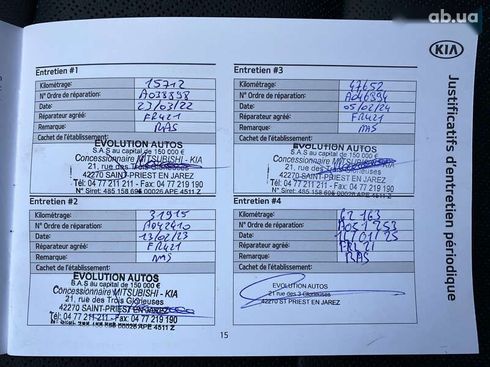 ab.ua
KIA
Justificatifs d'entretien périodique
Entretien #1
Kilométrage: 15712
N° Ordre de réparation: A038898
Date: 23/03/22
Réparateur agréé: FR421
Remarque: RAS
Cachet de l'établissement:
EVOLUTION AUTOS
S.A.S au capital de 150 000 €
Concessionnaire MITSUBISHI - KIA
21, rue des Trois Glorieuses
42270 SAINT-PRIEST EN JAREZ
Tél: 04 77 211 211 - Fax: 04 77 219 190
N° Siret: 485 158 696 00026 APE 4511 Z
Entretien #2
Kilométrage: 31915
N° Ordre de réparation: A042410
Date: 13/02/23
Réparateur agréé: FR421
Remarque: RAS
Cachet de l'établissement:
EVOLUTION AUTOS
S.A.S au capital de 150 000 €
Concessionnaire MITSUBISHI - KIA
21, rue des Trois Glorieuses
42270 SAINT-PRIEST EN JAREZ
Tél: 04 77 211 211 - Fax: 04 77 219 190
N° Siret: 485 158 696 00026 APE 4511 Z
Entretien #3
Kilométrage: 47652
N° Ordre de réparation: A046894
Date: 05/02/24
Réparateur agréé: FR421
Remarque: RAS
Cachet de l'établissement:
EVOLUTION AUTOS
S.A.S au capital de 150 000 €
Concessionnaire MITSUBISHI - KIA
21, rue des Trois
42270 SAINT-PRIEST EN JAREZ
Tél: 04 77 211 211 - Fax: 04 77 219 190
N° Siret: 485 158 696 00026 APE 4511 Z
Entretien #4
Kilométrage: 62163
N° Ordre de réparation: A051253
Date: 14/01/25
Réparateur agréé: FR421
Remarque: RAS
Cachet de l'établissement:
EVOLUTION AUTOS
21 rue des 3 Glorieuses
42270 ST PRIEST EN JAREZ
15